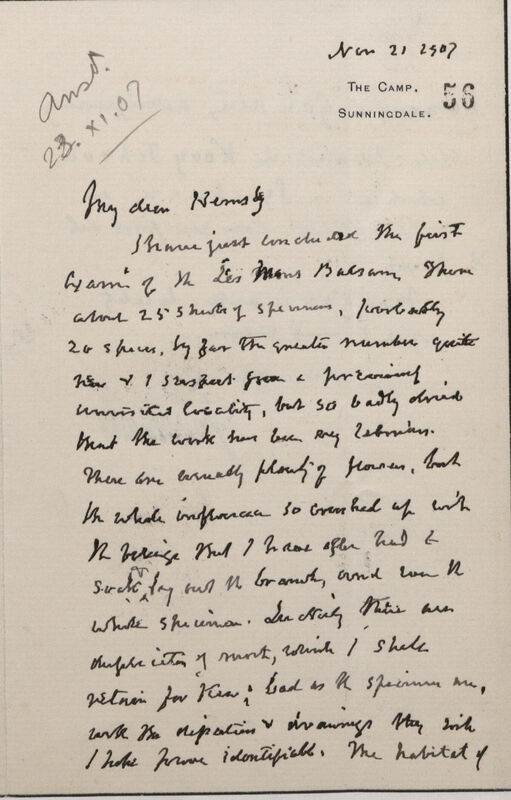 Nov 21 1907
THE CAMP,
SUNNINGDALE.
56
Ansd.
23. XI. 07
My dear Hemsley
I have just concluded the first
Exam of the Les Mons Balsams. There
about 25 sheets of specimens, probably
20 species, by far the greater number quite
new & I suspect from a previously
unvisited locality, but so badly dried
that the work has been very laborious.
There are usually plenty of flowers, but
the whole inflorescence so crushed up with
the foliage that I have often had to
soak & lay out the branch, and even the
whole specimen. Luckily there are
duplicates of most, which I shall
retain for Kew; bad as the specimens are,
with the dissections & drawings they will
I hope prove identifiable. The habitat of